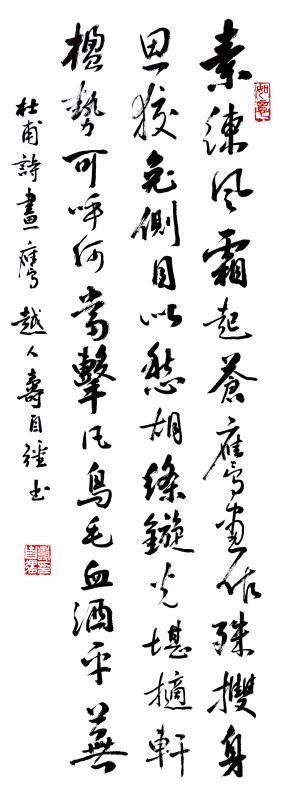 素練风霜起蒼鷹畫作殊㩳身
思狡兔側目似愁胡絛鏇光堪擿軒
楹勢可呼何當擊凡鳥毛血洒平蕪
杜甫詩畫鷹 越人壽自經书